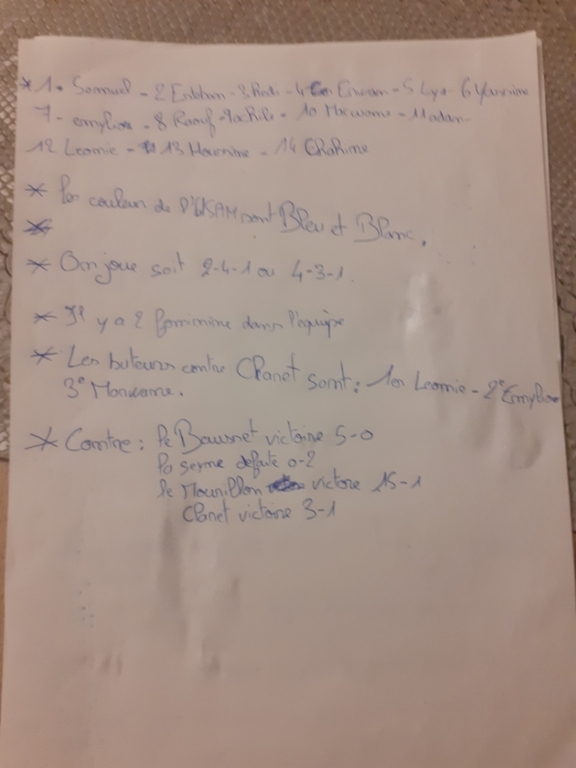 * 1. Samuel - 2 - 3 - 4 Erwan - 5 Lya - 6
7 - emylou - 8 Raouf - 9 - 10 Marwane - 11 Adan
12 Leonie - 13 - 14 Chahine
* les couleur de l'USAM sont Bleu et Blanc.
*
* On joue soit 2-4-1 ou 4-3-1.
* Il y a 2 feminine dans l'équipe
* Les buteurs contre Clanet sont: 1er Leonie - 2e Emylou
3e Marwane.
* Contre: le Bausset victoire 5-0
la seyne defaite 0-2
le Mourillon victoire 15-1
Clanet victoire 3-1